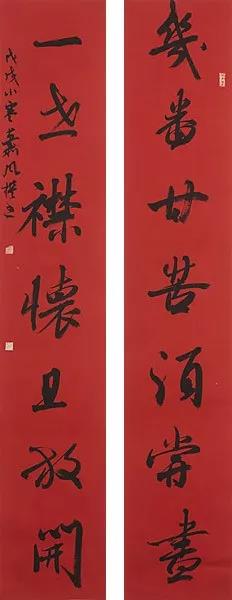 幾番甘苦須嘗盡
一世襟懷且放開
戊戌小寒嘉風